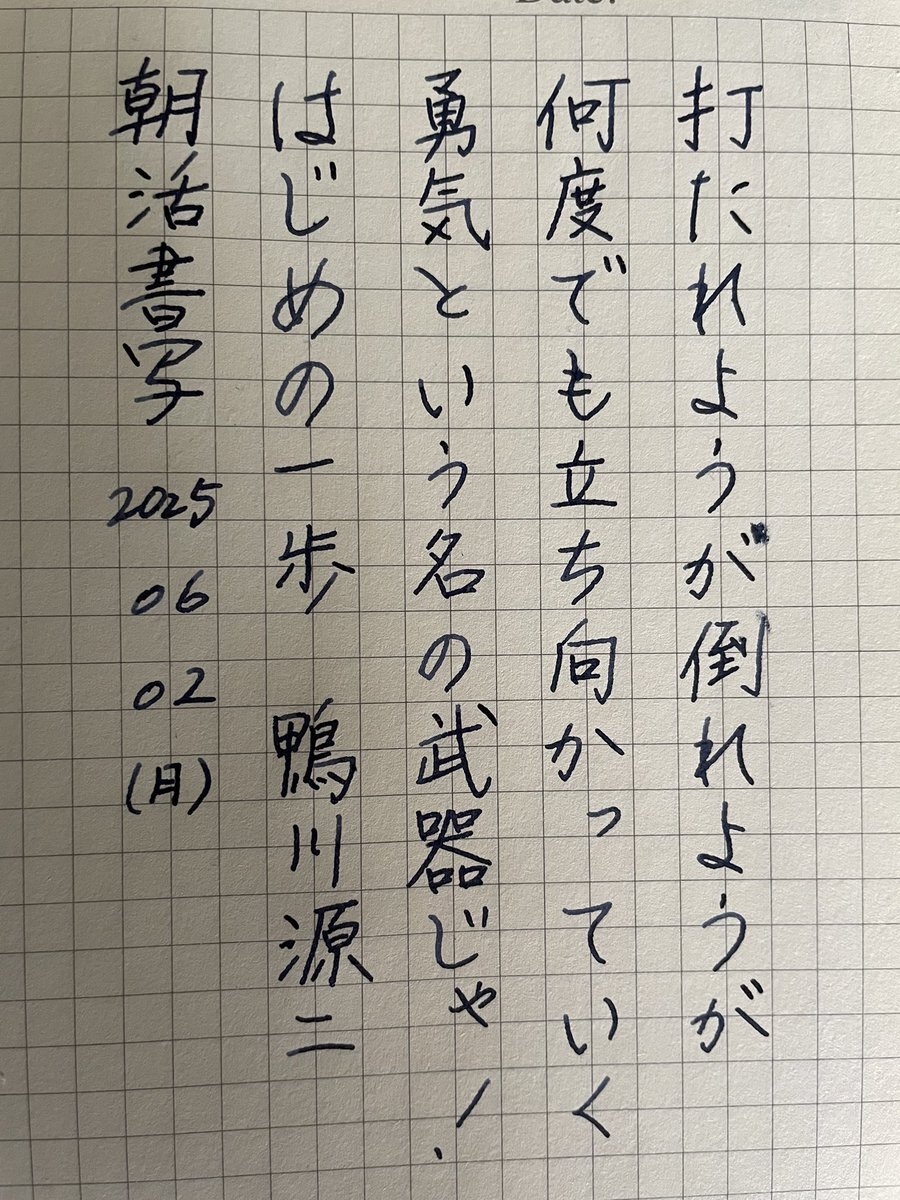 Date.
打たれようが倒れようが
何度でも立ち向かっていく
勇気という名の武器じゃ!
はじめの一歩 鴨川源二
朝活書写 2025 06 02 (月)